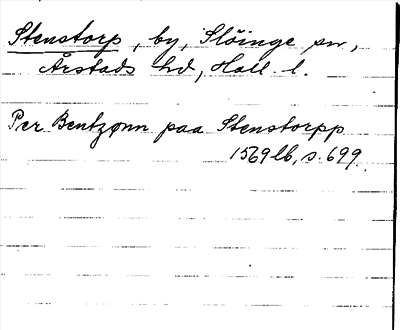 Stenstorp, by, Slöinge sn,
Årstads hd, Hall. l.
Per Bentzønn paa Stenstorpp
1569 lb, s. 699.